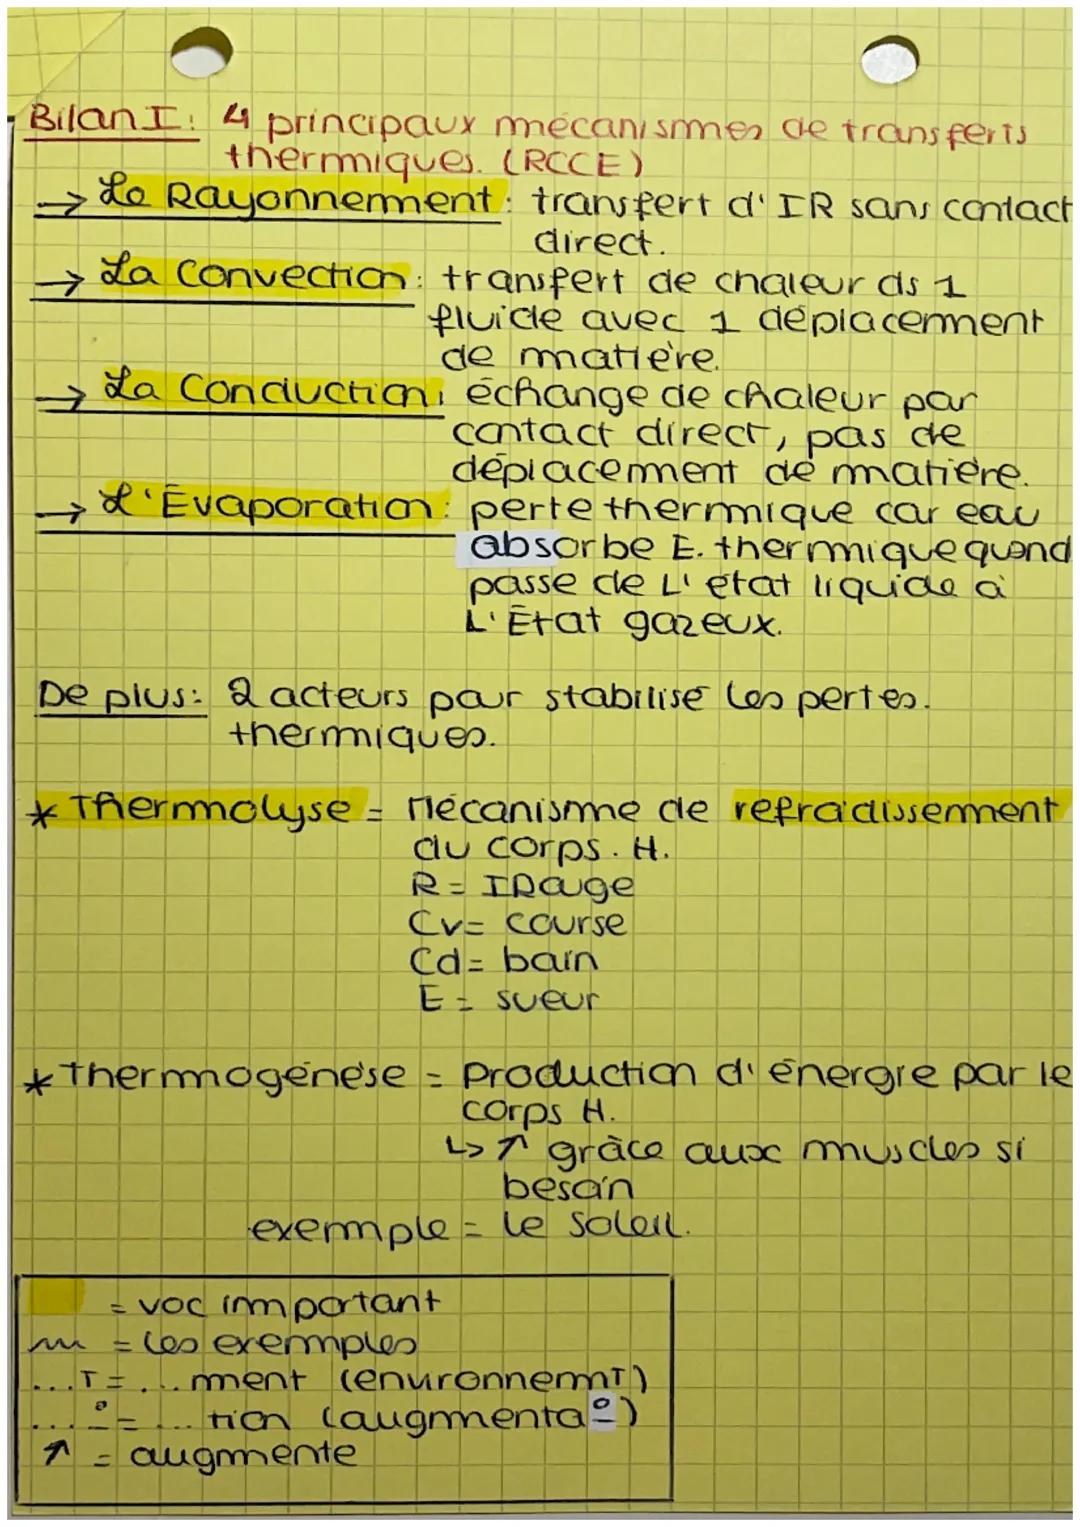 Bilan I: 4 principaux mécanismes de transferts
thermiques. (RCCE)
→ Le Rayonnement: transfert d'IR sans contact
direct.
→ La Convection: transfert de chaleur ds 1
fluide avec 1 déplacement
de matière.
→ La Conduction: échange de chaleur par
contact direct, pas de
déplacement de matière.
→ L'Évaporation: perte thermique car eau
absorbe E. thermique quand
passe de L'état liquide à
L'État gazeux.
De plus: 2 acteurs pour stabilisé les pertes.
thermiques.
* Thermolyse = Mécanisme de refroidissement
du corps. H.
R = IRouge
Cv = course
Cd = bain
E = sueur
* Thermogénèse = Production d'énergie par le
corps H.
↳ ↑ grâce aux muscles si
besoin
exemple = le soleil.
= voc important
= les exemples
...T = ...ment (environnemT)
...° = ...tion (augmentaº)
↑ = augmente